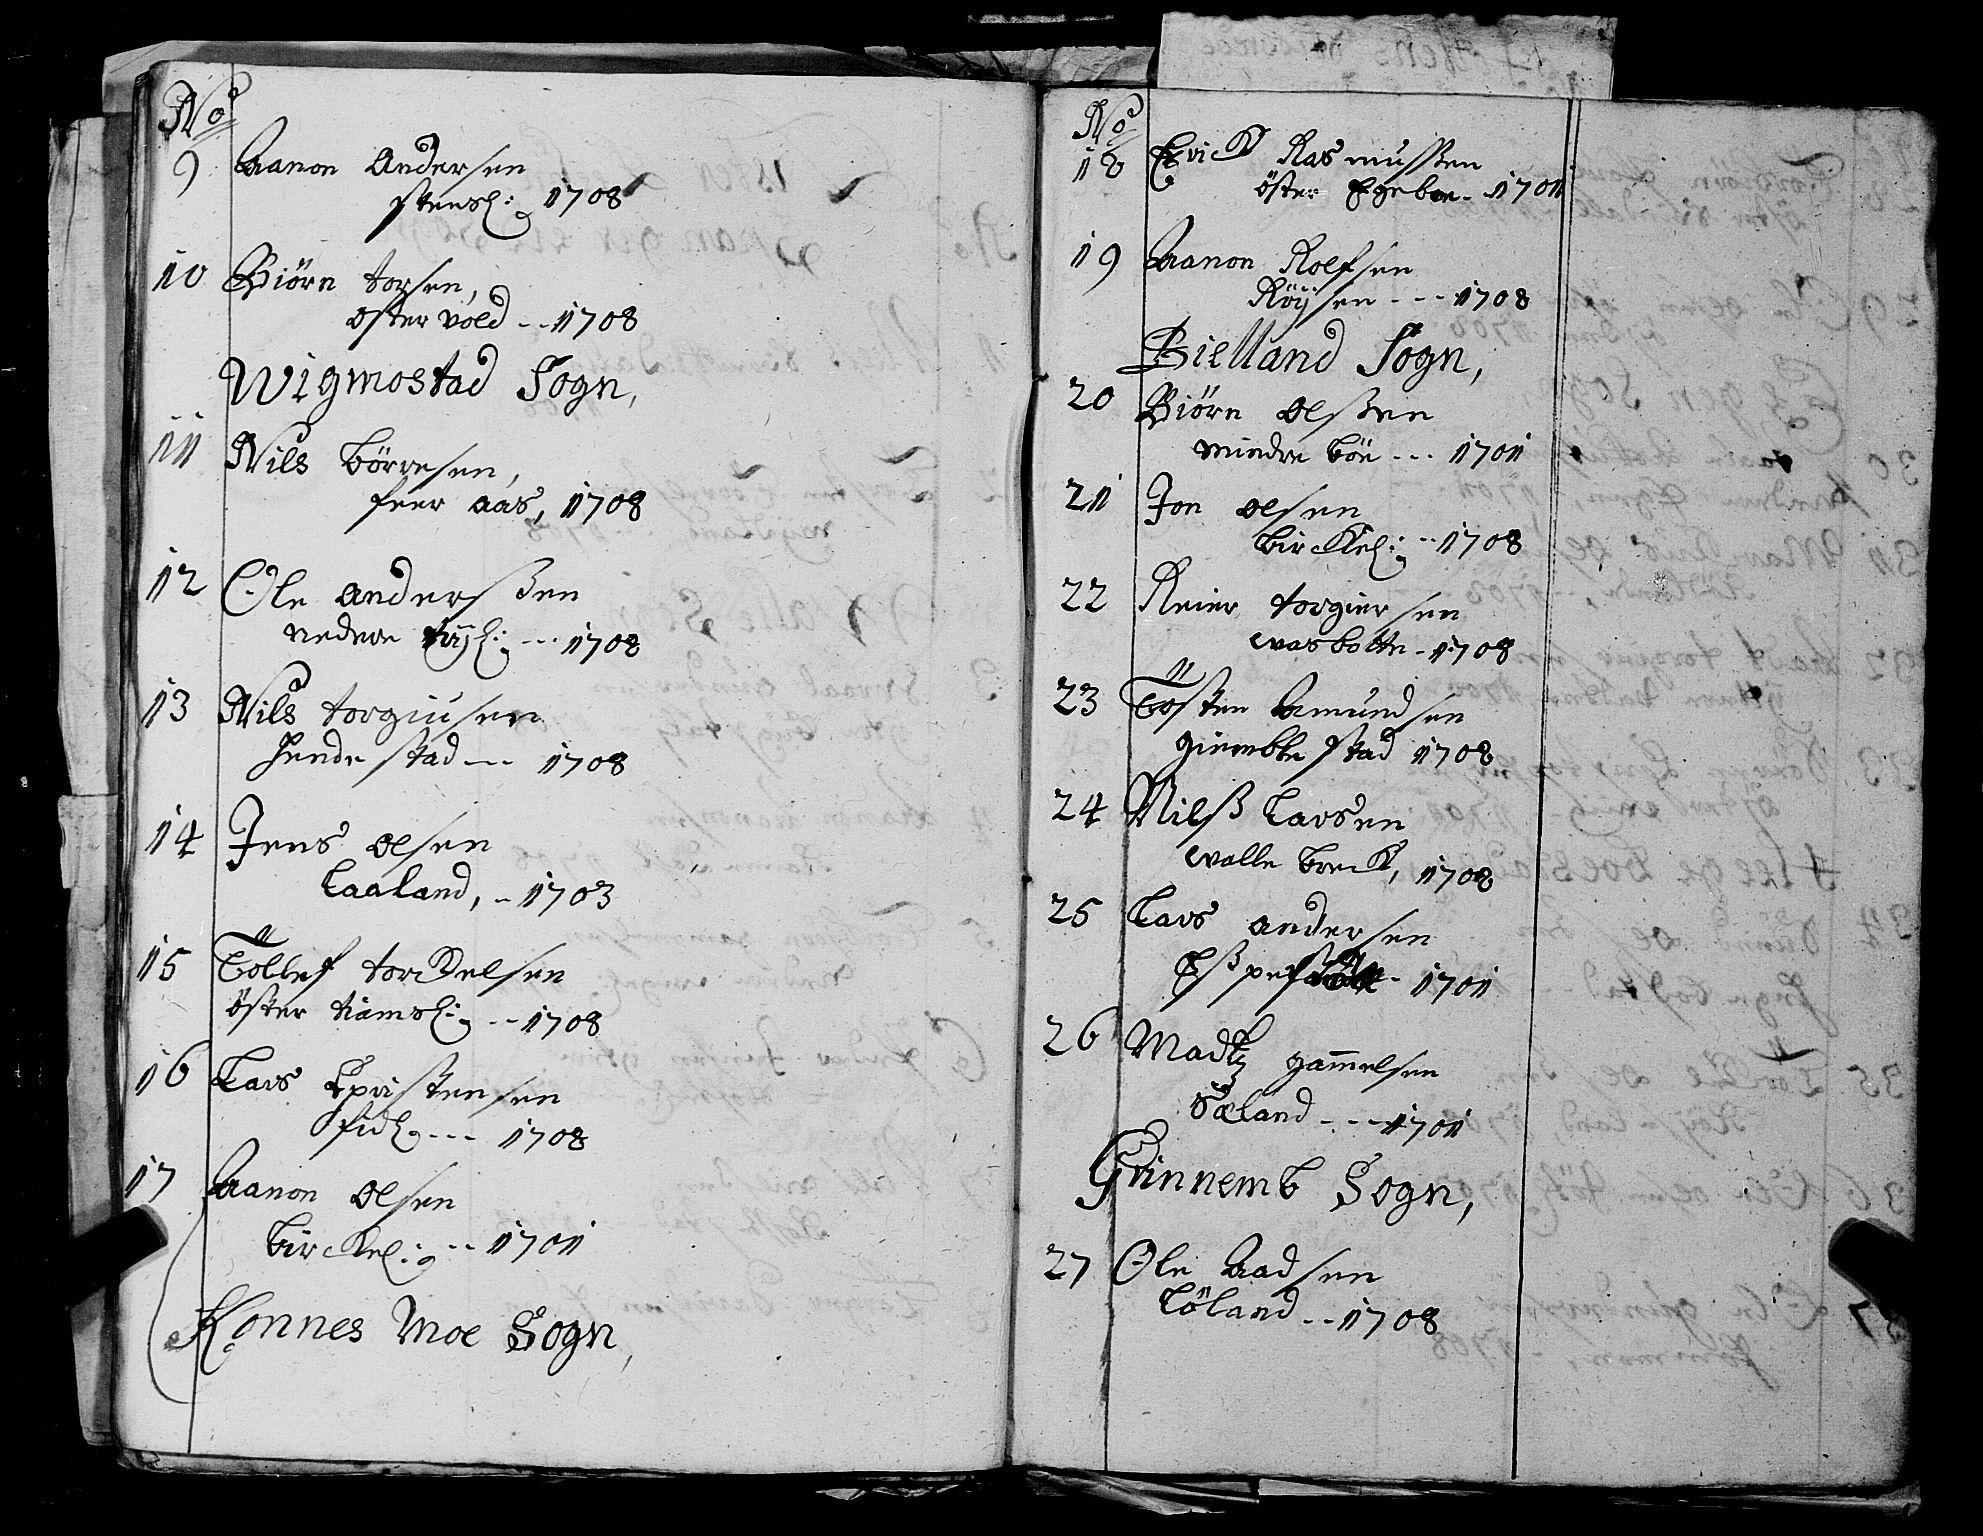 No
9 Aanon Andersen
stensl: 1708
10 Biörn torsen,
oster vold -- 1708
Wigmostad Sogn,
11 Nils börresen,
feer aas, 1708
12 Ole anderssen
nedere --- 1708
13 Nils torgiusen
Hendestad --- 1708
14 Jens olsen
Laaland, - 1703
15 Tollef torckelsen
öster tiamsl: -- 1708
16 Lars Christensen
fidl --- 1708
17 Aanon olsen
birckel: -- 1701
Konnes Moe Sogn,
No
18 Erick Rasmussen
öster Egeboe - 1701
19 Aanon Rolfsen
Röijsen --- 1708
Bielland Sogn,
20 Biörn olssen
mindre böe --- 1701
21 Jon olsen
birckel: -- 1708
22 Reier torgiersen
wasbotte - 1708
23 Tösten Amundsen
gimblestad 1708
24 Nilss Larsen
walle breck, 1708
25 Lars andersen
- 1701
26 Madtz gammelsen
Säland --- 1701
Grinnemb Sogn,
27 Ole Aadsen
Löland -- 1708